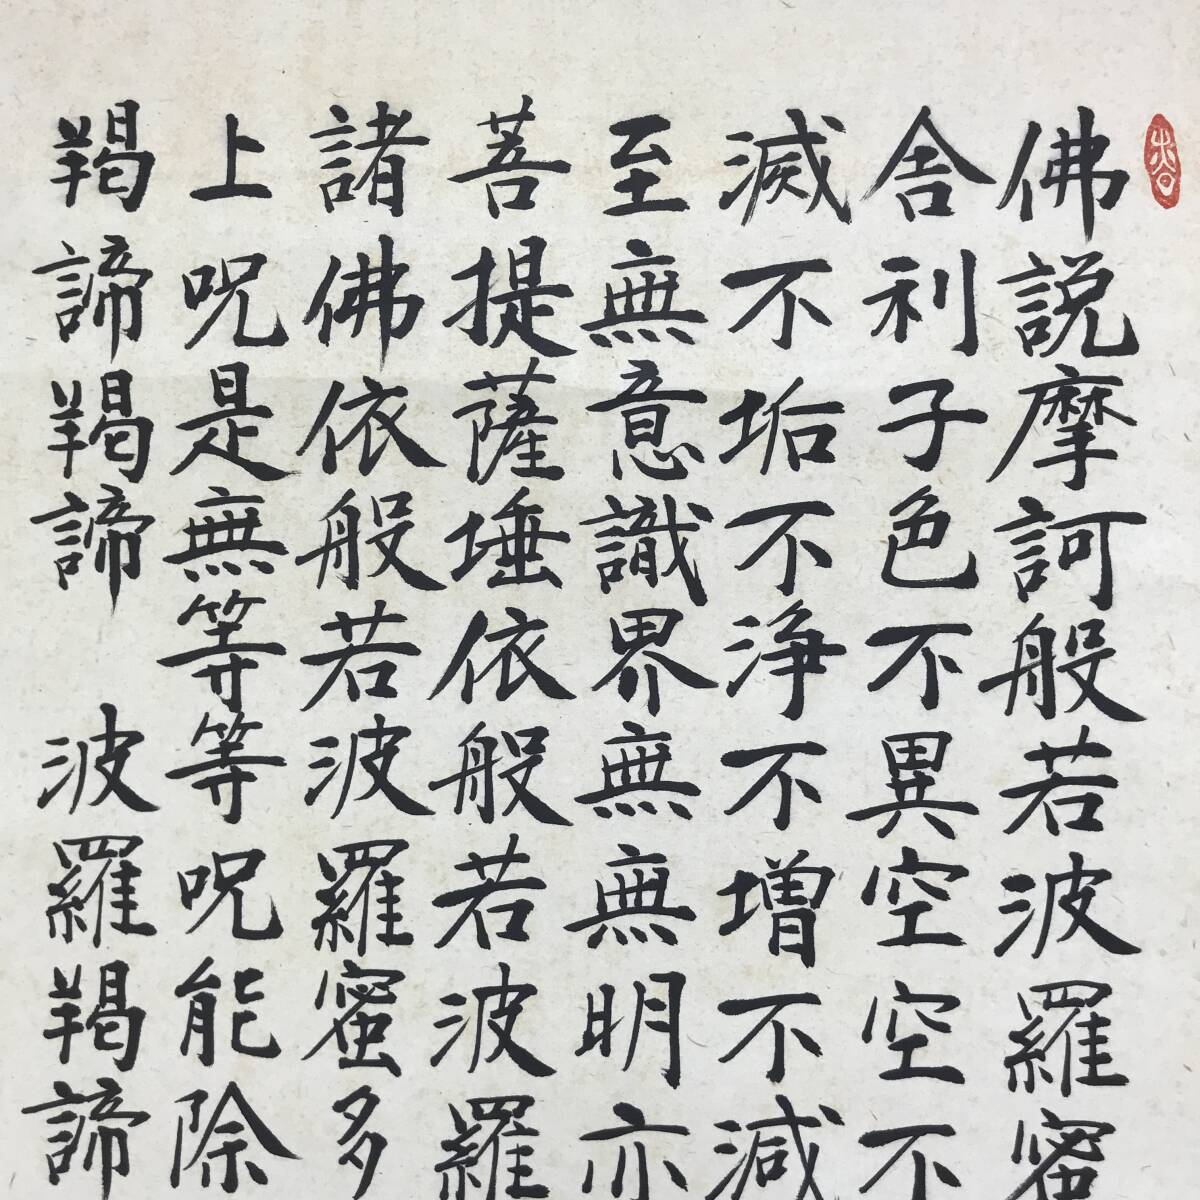 佛説摩訶般若波羅蜜
舎利子色不異空空不
滅不垢不浄不増不減
至無意識界無無明亦
菩提薩埵依般若波羅
諸佛依般若波羅蜜多
上呪是無等等呪能除
羯諦羯諦 波羅羯諦